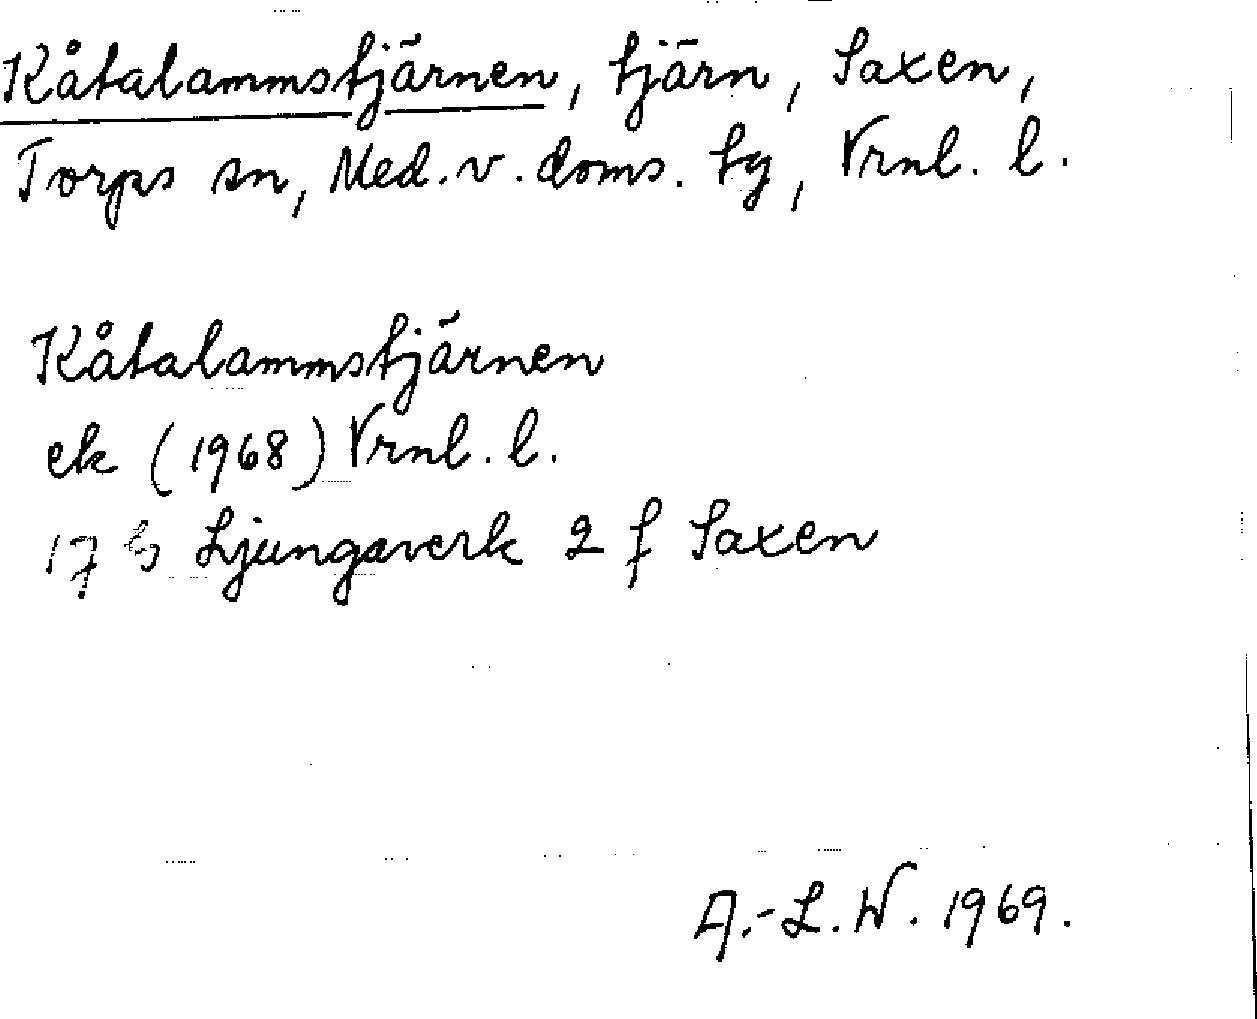 Kåtalammstjärnen, tjärn, Saxen,
Torps sn, Med. v. doms. tg, Vrnl. l.
Kåtalammstjärnen
ek (1968) Vrnl. l.
17 Ljungaverk 2 f Saxen
A.-L. W. 1969.